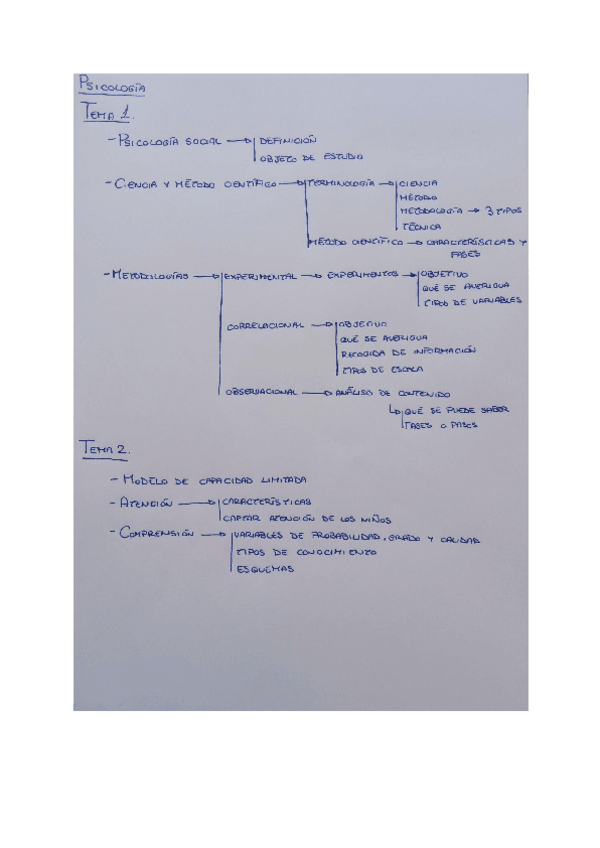 PSICOLOGÍA
TEMA 1.
- PSICOLOGÍA SOCIAL → DEFINICIÓN
OBJETO DE ESTUDIO
- CIENCIA Y MÉTODO CIENTÍFICO → TERMINOLOGÍA → CIENCIA
MÉTODO
METODOLOGÍA → 3 TIPOS
TÉCNICA
MÉTODO CIENTÍFICO → CARACTERÍSTICAS Y
FASES
- METODOLOGÍAS → EXPERIMENTAL → EXPERIMENTOS → OBJETIVO
QUÉ SE AVERIGUA
TIPOS DE VARIABLES
CORRELACIONAL → OBJETIVO
QUÉ SE AVERIGUA
RECOGIDA DE INFORMACIÓN
TIPOS DE ESCALA
OBSERVACIONAL → ANÁLISIS DE CONTENIDO
↳ QUÉ SE PUEDE SABER
FASES O PASOS
TEMA 2.
- MODELO DE CAPACIDAD LIMITADA
- ATENCIÓN → CARACTERÍSTICAS
CAPTAR ATENCIÓN DE LOS NIÑOS
- COMPRENSIÓN → VARIABLES DE PROBABILIDAD, GRADO Y CALIDAD
TIPOS DE CONOCIMIENTO
ESQUEMAS